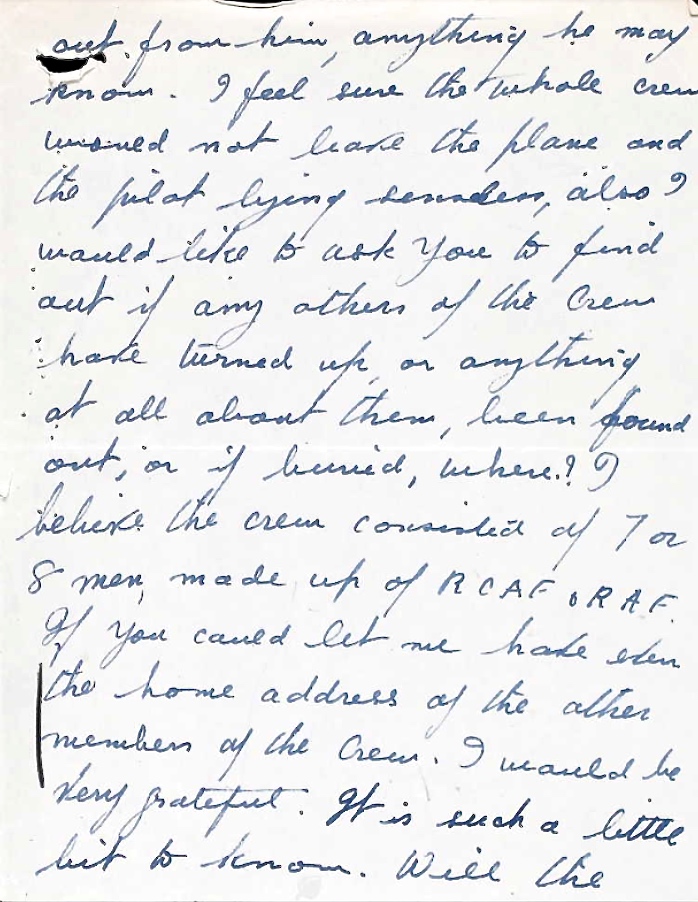 out from him, anything he may
know. I feel sure the whole crew
would not leave the plane and
the pilot lying senseless, also I
would like to ask You to find
out if any others of the Crew
have turned up, or anything
at all about them, been found
out, or if buried, where!? I
believe the crew consisted of 7 or
8 men, made up of RCAF & RAF.
If You could let me have even
the home address of the other
members of the Crew. I would be
very grateful. It is such a little
bit to know. Will the